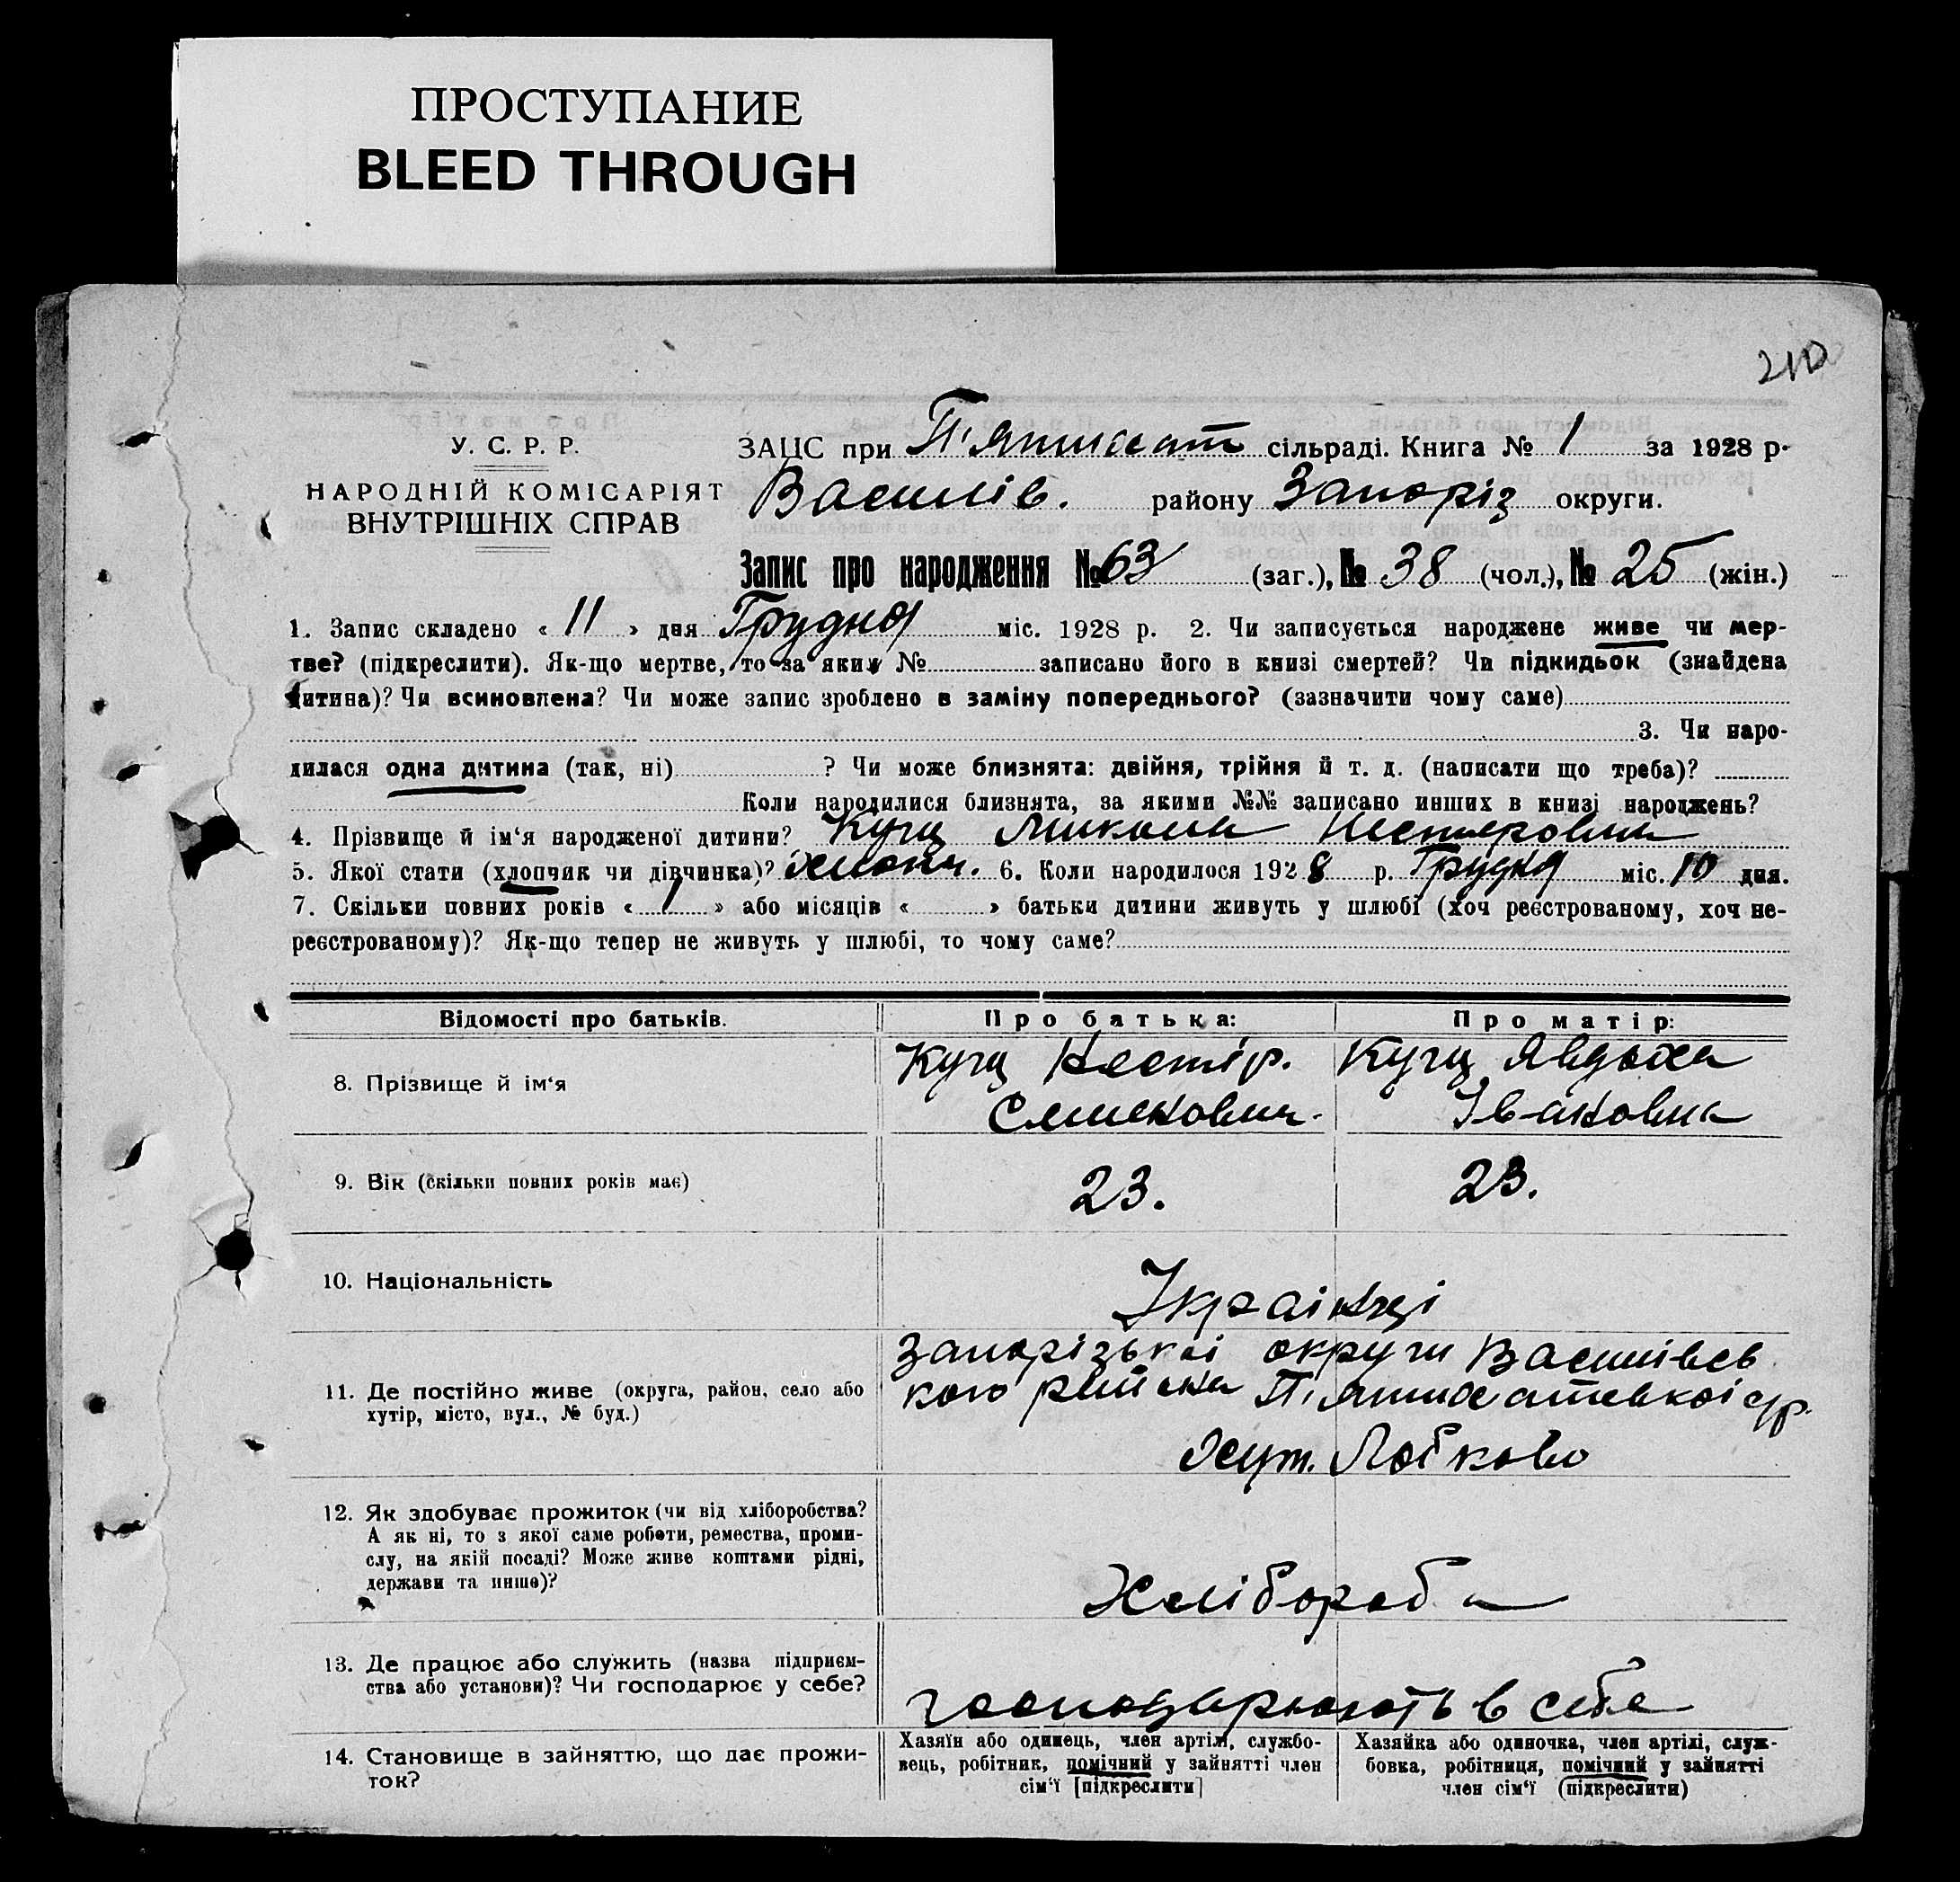 ПРОСТУПАНИЕ
BLEED THROUGH
210
У. С. Р. Р.
НАРОДНІЙ КОМІСАРІЯТ
ВНУТРІШНІХ СПРАВ
ЗАЦС при П'ятихат сільраді. Книга № 1 за 1928 р.
Василів. району Запоріз округи.
Запис про народження № 63 (заг.), № 38 (чол.), № 25 (жін.)
1. Запис складено « 11 » дня Грудня міс. 1928 р. 2. Чи записується народжене живе чи мер-
тве? (підкреслити). Як-що мертве, то за яким № записано його в книзі смертей? Чи підкидьок (знайдена
дитина)? Чи всиновлена? Чи може запис зроблено в заміну попереднього? (зазначити чому саме)
3. Чи наро-
дилася одна дитина (так, ні) ? Чи може близнята: двійня, трійня й т. д. (написати що треба)?
Коли народилися близнята, за якими №№ записано инших в книзі народжень?
4. Прізвище й ім‘я народженої дитини? Куц Микола Нестерович
5. Якої стати (хлопчик чи дівчинка)? хлопч. 6. Коли народилося 1928 р. Грудня міс. 10 дня.
7. Скільки повних років « 1 » або місяців « » батьки дитини живуть у шлюбі (хоч реєстрованому, хоч не-
реєстрованому)? Як-що тепер не живуть у шлюбі, то чому саме?
Відомості про батьків. Про батька: Про матір:
8. Прізвище й ім‘я
Куц Нестір. Куц Явдоха
Івановна
9. Вік (скільки повних років має) 23. 23.
10. Національність Українці
11. Де постійно живе (округа, район, село або
хутір, місто, вул., № буд.)
Запорізької округи Василівсь
кого района П'ятихатської с/р.
Хут. Лобково
12. Як здобуває прожиток (чи від хліборобства?
А як ні, то з якої саме роботи, ремества, проми-
слу, на якій посаді? Може живе коштами рідні,
держави та инше)?
Хлібороб
13. Де працює або служить (назва підприєм-
ства або установи)? Чи господарює у себе?
господарюють в себе
14. Становище в зайняттю, що дає прожи-
ток?
Хазяїн або одинець, член артілі, службо-
вець, робітник, помічний у зайнятті член
сім‘ї [підкреслити]
Хазяйка або одиночка, член артілі, служ-
бовка, робітниця, помічний у зайнятті
член сім‘ї (підкреслити)